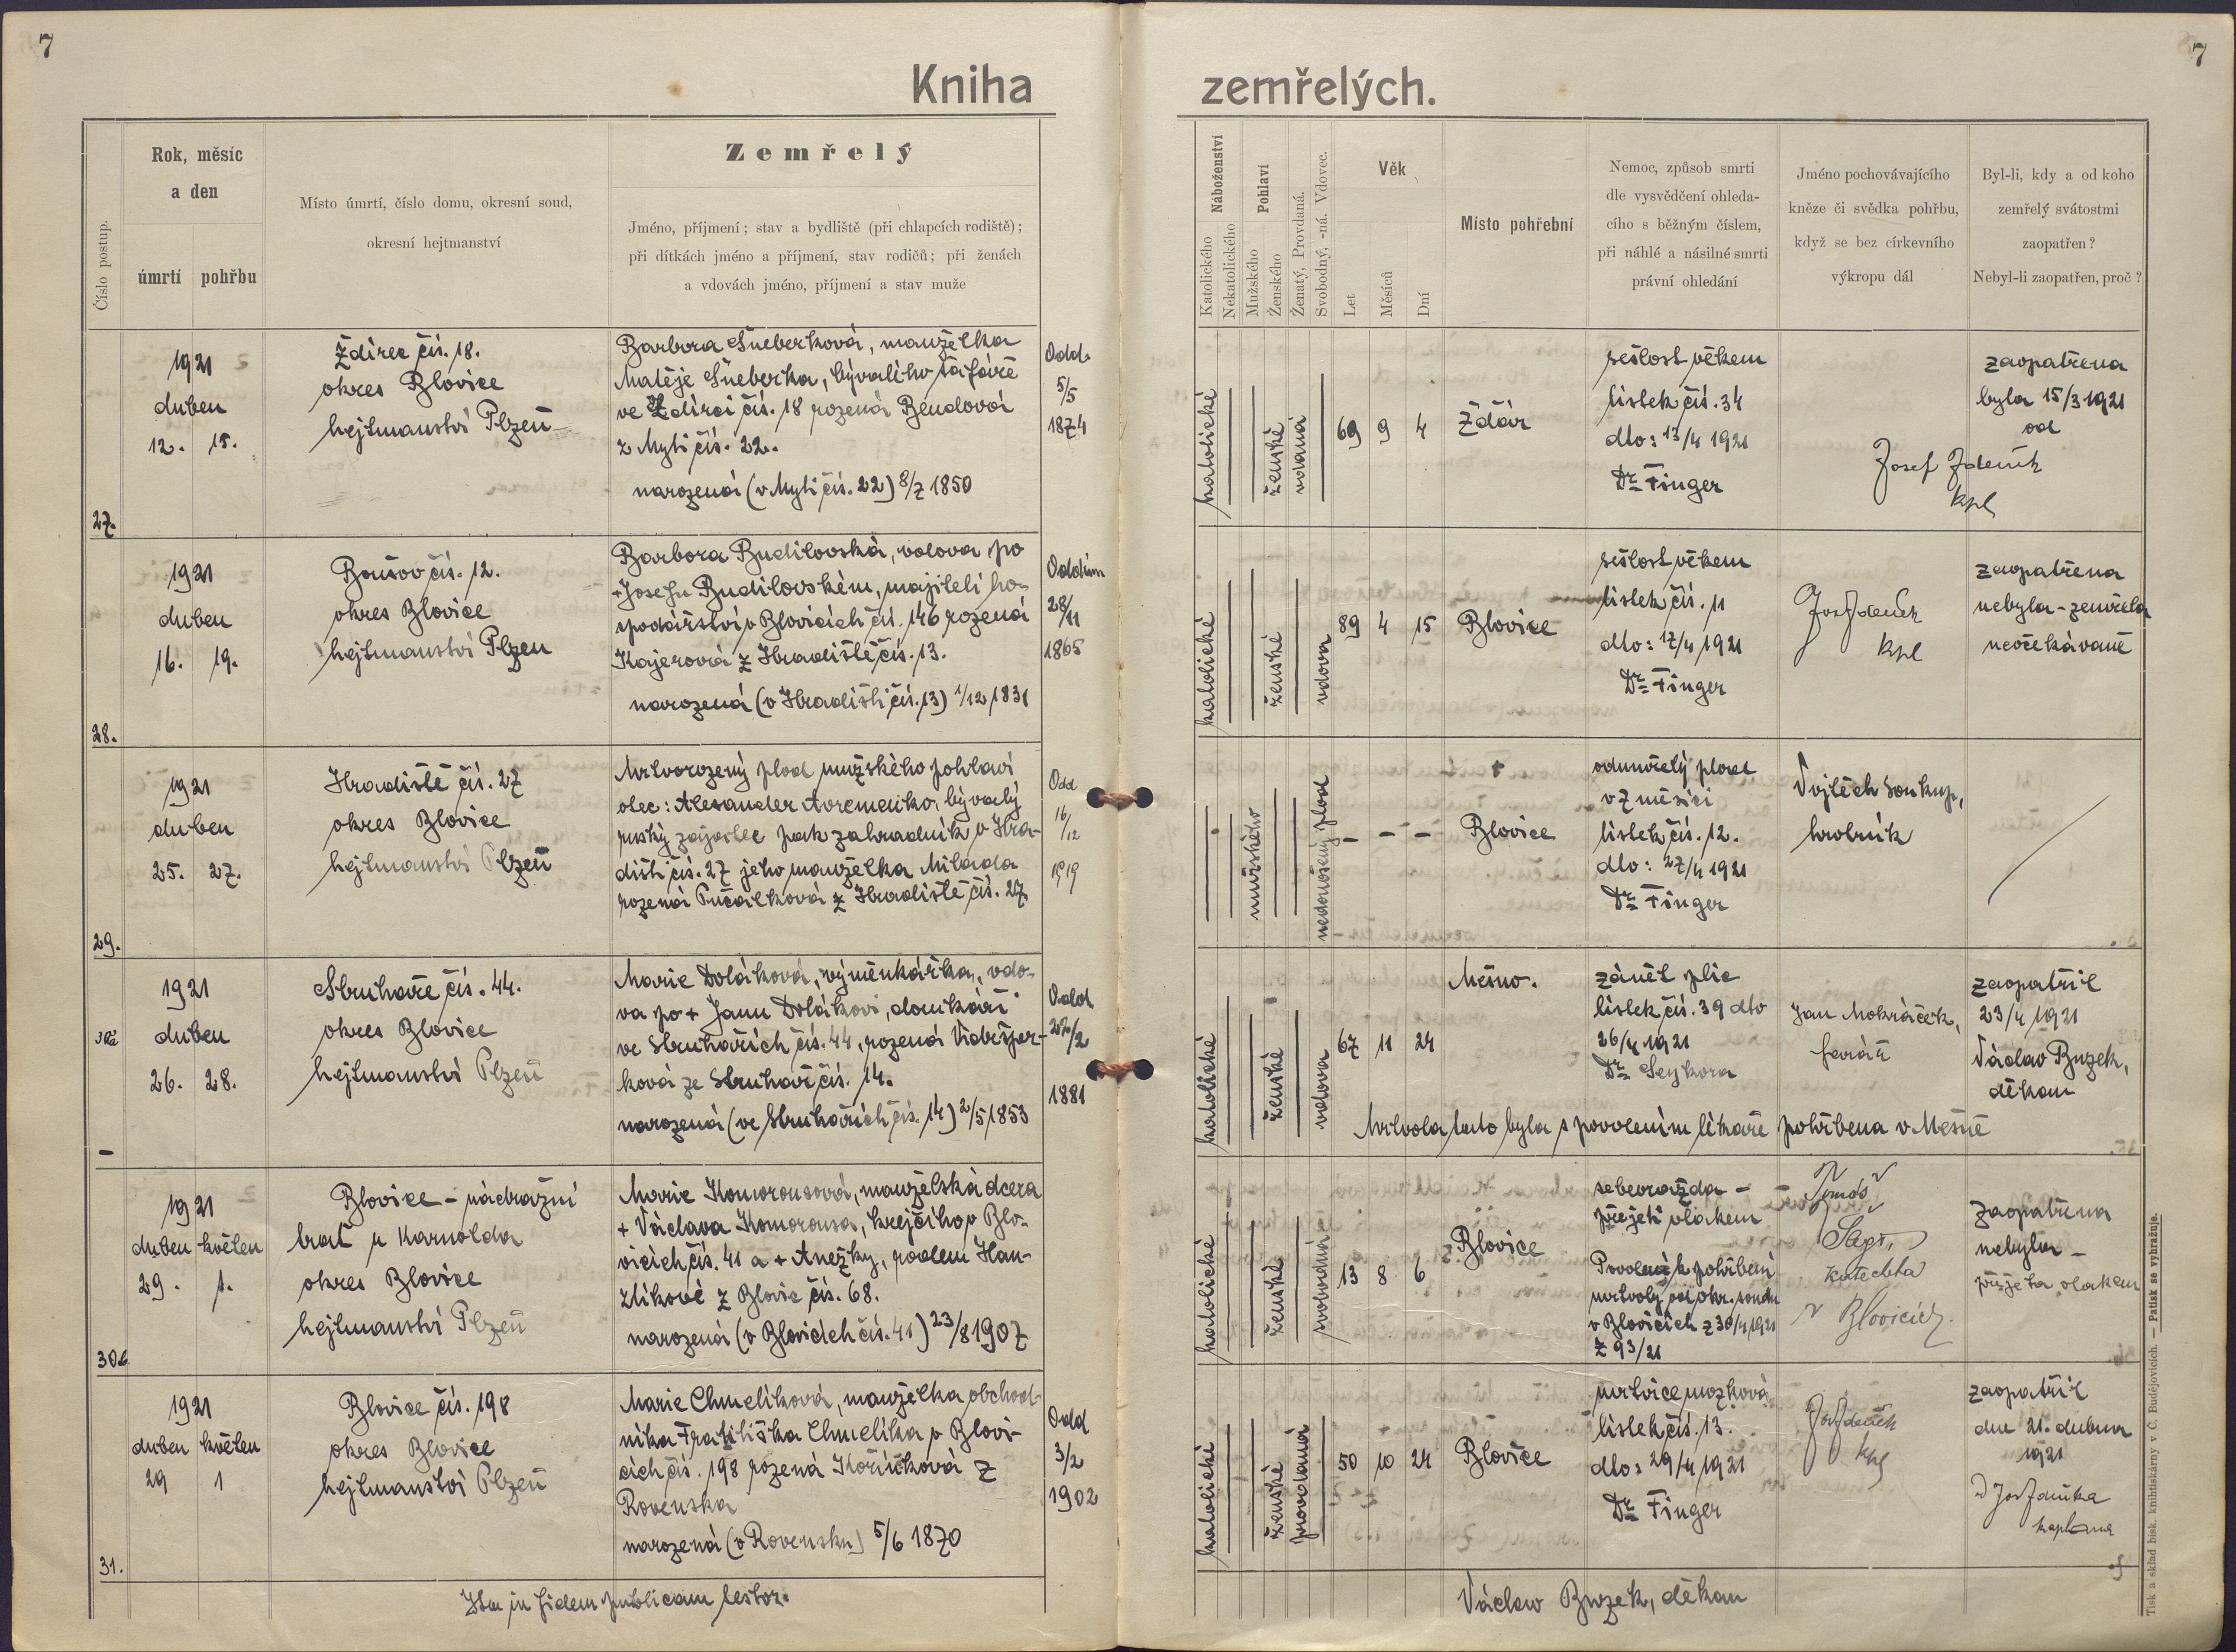 7
7
Kniha
zemřelých.
Číslo postup.
Rok, měsíc
a den
úmrtí
pohřbu
Místo úmrtí, číslo domu, okresní soud,
okresní hejtmanství
Zemřelý
Jméno, příjmení; stav a bydliště (při chlapcích rodiště);
při dítkách jméno a příjmení, stav rodičů; při ženách
a vdovách jméno, příjmení a stav muže
Náboženství
Katolického
Nekatolického
Pohlaví
Mužského
Ženského
Ženatý, Provdaná.
Svobodný, -ná. Vdovec.
Věk
Let
Měsíců
Dní
Místo pohřební
Nemoc, způsob smrti
dle vysvědčení ohleda-
cího s běžným číslem,
při náhlé a násilné smrti
právní ohledání
Jméno pochovávajícího
kněze či svědka pohřbu,
když se bez církevního
výkropu dál
Byl-li, kdy a od koho
zemřelý svátostmi
zaopatřen?
Nebyl-li zaopatřen, proč?
27.
1921
duben
12. 15.
Ždírec čís. 18.
okres Blovice
hejtmanství Plzeň
Barbora Šneberková, manželka
Matěje Šneberka, bývalého šafáře
ve Ždírci čís. 18 rozená Bendová
z Mytí čís. 22.
narozená (v Mytí čís. 22) 8/7 1850
Odd.
5/5
1874
katolické
ženské
vdaná
69 9 4
Ždár
sešlost věkem
lístek čís. 34
dto: 13/4 1921
Dr Finger
Josef Zdeněk
kpl
zaopatřena
byla 15/3 1921
od
28.
1921
duben
16. 19.
čís. 12.
okres Blovice
hejtmanství Plzeň
Barbora Budilovská, vdova po
+ Josefu Budilovském, majiteli ho-
spodářství v Blovicích čís. 146 rozená
Kajerová z Hradiště čís. 13.
narozená (v Hradišti čís. 13) 1/12 1831
28/11
1865
katolické
ženské
vdova
89 4 15
Blovice
sešlost věkem
lístek čís. 11
dto: 17/4 1921
Dr Finger
Jos Zdeněk
kpl
zaopatřena
nebyla - zemřela
neočekávaně
29.
1921
duben
25. 27.
Hradiště čís. 27
okres Blovice
hejtmanství Plzeň
Mrtvorozený plod mužského pohlaví
otec: Alexander bývalý
ruský zajatec pak zahradník v Hra-
dišti čís. 27 jeho manželka Milada
rozená z Hradiště čís. 27
Odd
16/12
1919
mužského
nedonošený plod
- - -
Blovice
odumřelý plod
v 7 měsíci
lístek čís. 12.
dto: 27/4 1921
Dr Finger
Vojtěch Soukup,
hrobník
1921
duben
26. 28.
Struhaře čís. 44.
okres Blovice
hejtmanství Plzeň
Marie Dolákova, výměnkářka, vdo-
va po + Janu Dolákovi, domkáři
ve Struhařích čís. 44, rozená
ková ze Struhař čís. 14.
narozená (ve Struhařích čís. 14) 2/5 1853
Odd
1881
katolické
ženské
vdova
67 11 24
Měšno.
zánět plic
lístek čís. 39 dto
26/4 1921
Dr Seykora
Jan Mokráček,
farář
zaopatřil
23/4 1921
Václav Buzek,
děkan
Mrtvola tato byla s povolením lékaře pohřbena v Měšně
30.
1921
duben květen
29. 1.
Blovice - nádražní
trať u Karnolda
okres Blovice
hejtmanství Plzeň
Marie Komorousová, manželská dcera
+ Václava Komorousa, krejčího v Blo-
vicích čís. 41 a + Anežky, rodem Han-
zlíkové z Blovic čís. 68.
narozená (v Blovicích čís. 41) 23/8 1907
katolické
ženské
svobodná
13 8 6
Blovice
sebevražda -
přejetí vlakem
Povolení k pohřbení
mrtvoly od okr. soudu
v Blovicích z 30/4 1921
Z 93/21
katecheta
v Blovicích.
zaopatřena
nebyla -
přejeta vlakem
31.
1921
duben květen
29 1
Blovice čís. 198
okres Blovice
hejtmanství Plzeň
Marie Chmelíková, manželka obchod-
níka Františka Chmelíka v Blovi-
cích čís. 198 rozená Kořínková z
Rovenska
narozená (v Rovensku) 5/6 1870
Odd
3/2
1902
katolické
ženské
provdaná
50 10 24
Blovice
mrtvice mozková
lístek čís. 13.
dto: 29/4 1921
Dr Finger
Jos Zdeněk
kpl
zaopatřil
dne 21. dubna
1921
Jos Zdeňka
kaplana
Ita in fidem publicam testor.
Václav Buzek, děkan
Tisk a sklad bisk. knihtiskárny v Č. Budějovicích. — Patisk se vyhražuje.